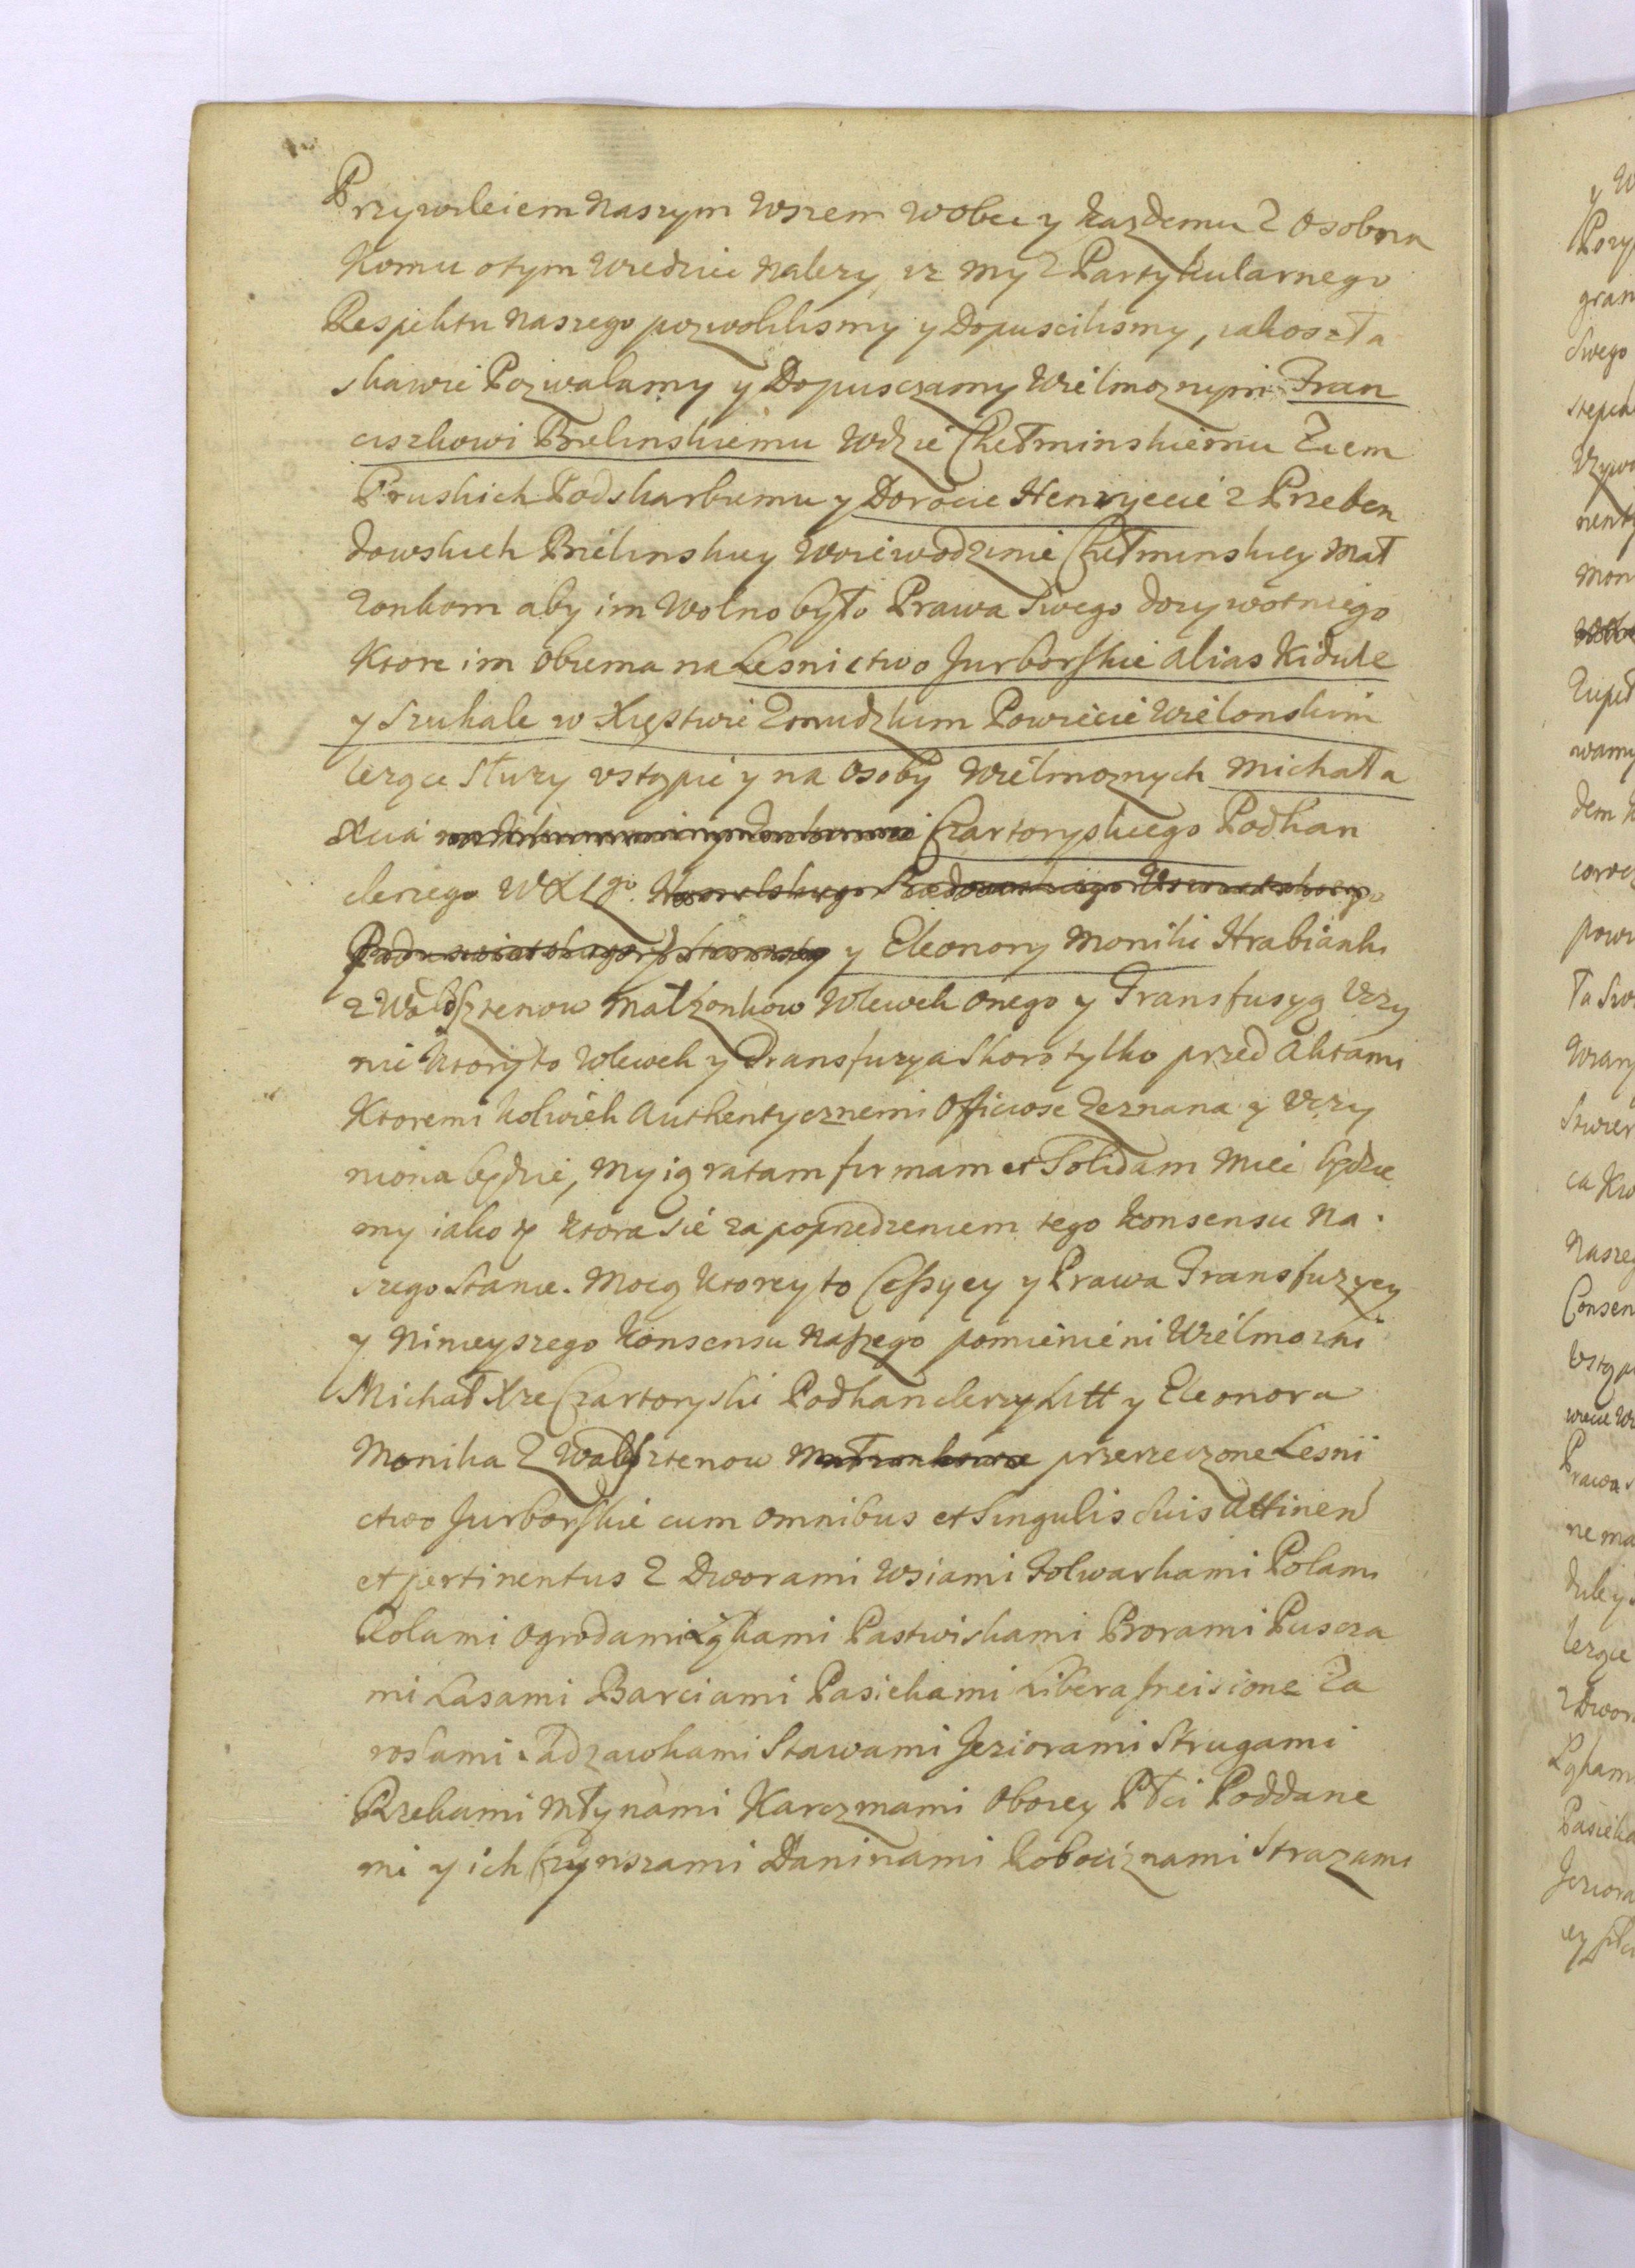 Przywileiem Naszym Wszem Wobec y Kazdemu z Osobna
Komu o tym Wiedziec Nalezy, iz My z Partykularnego
Respektu Naszego pozwolilismy y Dopuscilismy, iakosz Ła
skawie Pozwalamy y Dopusczamy Wielmoznym Fran
ciszkowi Bielinskiemu Wdzie Chełminskiemu Ziem
Pruskich Podskarbiemu y Dorocie Henryecie z Przeben
dowskich Bielinskiey Woiewodzinie Chełminskiey Mał
zonkom aby im Wolno było Prawa Swego dozywotniego
Ktore im obiema na Lesnictwo Jurborskie alias Kidule
y Szukale w Xięstwie Zmudzkim Powiecie Wielonskim
lezące Słuzy ustąpic y na Osoby Wielmoznych Michała
Xcia Czartoryskiego Podkan
clerzego WXLgo
y Eleonory Moniki Hrabianki
z Waldsztenow Małzonkow Wlewek onego y Transfusyą Uczy
nic Ktory to Wlewek y Transfuzya Skoro tylko przed Aktami
Ktoremi kolwiek Authentycznemi Officiose Zeznana y Uczy
niona będzie, My ią ratam firmam et Solidam Miec będzie
my iako tę ktora sie za poprzedzeniem tego Konsensu Na.
szego Stanie. Mocą Ktorey to Cessyey y Prawa Transfuzyey
y Ninieyszego Konsensu Naszego pomienieni Wielmozni
Michał Xze Czartoryski Podkanclerzy Litt y Eleonora
Monika z Waldsztenow Małzonkowie przerzeczone Lesni
ctwo Jurborskie cum omnibus et Singulis Suis Attinen
et pertinentus z Dworami Wsiami Folwarkami Polami
Rolami Ogrodami Łąkami Pastwiskami Borami Puscza
mi Lasami Barciami Pasiekami Libera Incisione Za
roslami Sadzawkami Stawami Jeziorami Strugami
Rzekami Młynami Karczmami Oboiey Płci Poddane
mi y ich Czynszami Daninami Robociznami Strazami